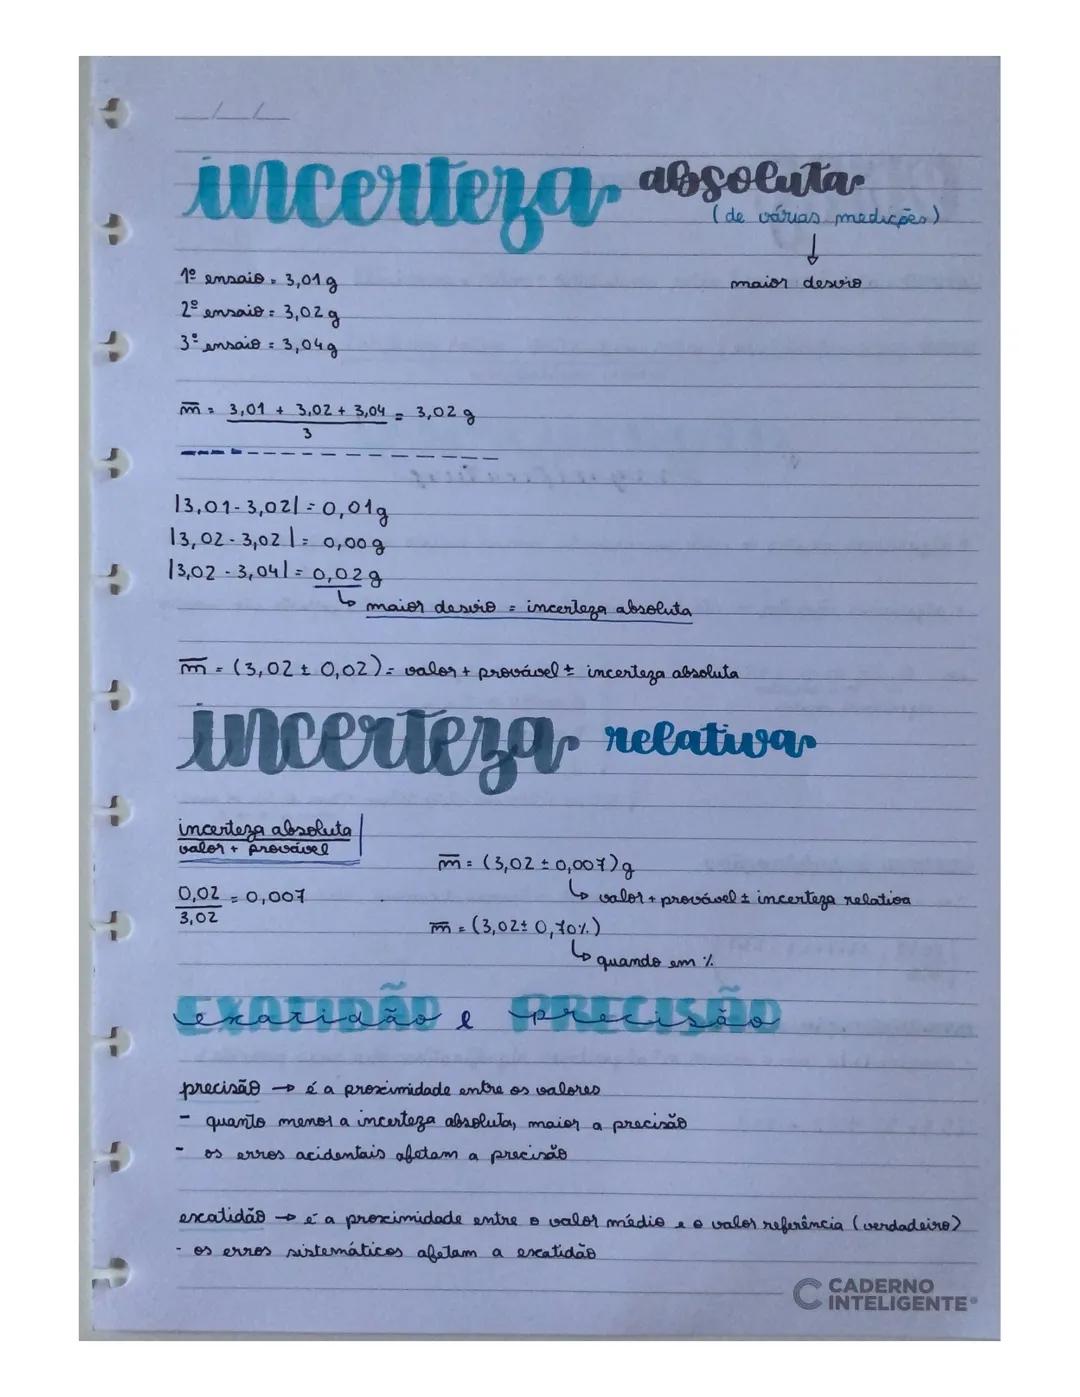 __/__/__
incerteza absoluta
(de várias medições)
↓
maior desvio
1º ensaio = 3,01 g
2º ensaio = 3,02 g
3º ensaio = 3,04 g
m̅ = 3,01 + 3,02 + 3,04 = 3,02 g
3
|3,01 - 3,02| = 0,01 g
|3,02 - 3,02| = 0,00 g
|3,02 - 3,04| = 0,02 g
↳ maior desvio = incerteza absoluta
m̅ = (3,02 ± 0,02) = valor + provável ± incerteza absoluta
incerteza relativa
incerteza absoluta
valor + provável
0,02 = 0,007
3,02
m̅ = (3,02 ± 0,007) g
↳ valor + provável ± incerteza relativa
m̅ = (3,02 ± 0,70%)
↳ quando em %
exatidão e precisão
precisão → é a proximidade entre os valores
- quanto menor a incerteza absoluta, maior a precisão
- os erros acidentais afetam a precisão
exatidão → é a proximidade entre o valor médio e o valor referência (verdadeiro)
- os erros sistemáticos afetam a exatidão
CADERNO
INTELIGENTE®